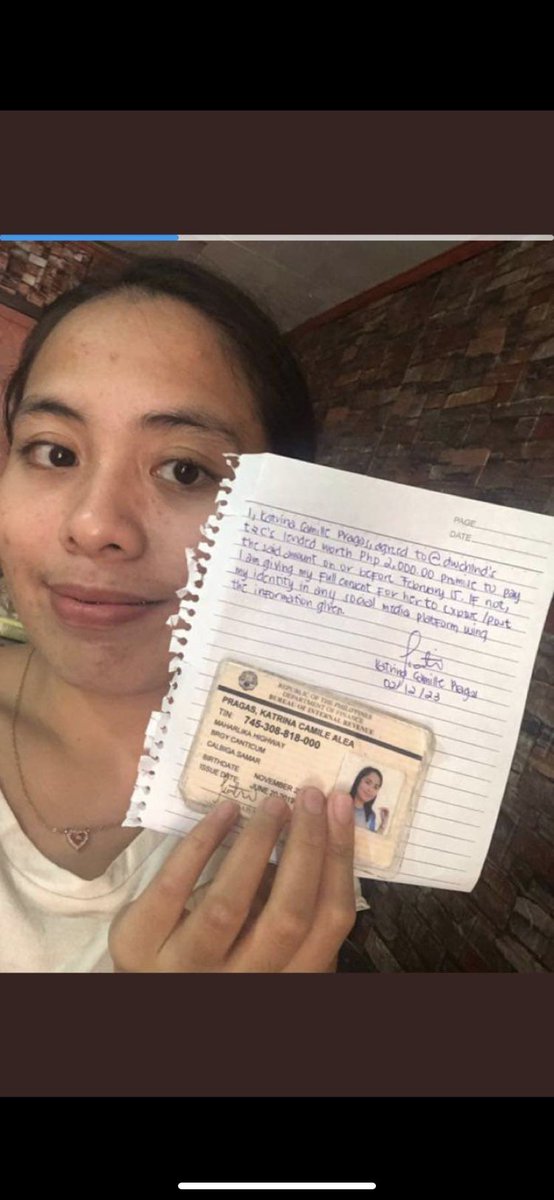 PAGE
DATE
I, Katrina Camille Pragas, agreed to @dwchlnd's
t&c's lended worth Php 2,000.00 promise to pay
the said amount on or before February 15. If not,
I am giving my full consent for her to expose/post
my identity in any social media platform using
the information given.
Katrina Camille Pragas
02/12/23
REPUBLIC OF THE PHILIPPINES
DEPARTMENT OF FINANCE
BUREAU OF INTERNAL REVENUE
PRAGAS, KATRINA CAMILE ALEA
TIN: 745-308-818-000
MAHARLIKA HIGHWAY
BRGY CANTICUM
CALBIGA SAMAR
BIRTHDATE NOVEMBER
ISSUE DATE JUNE 20